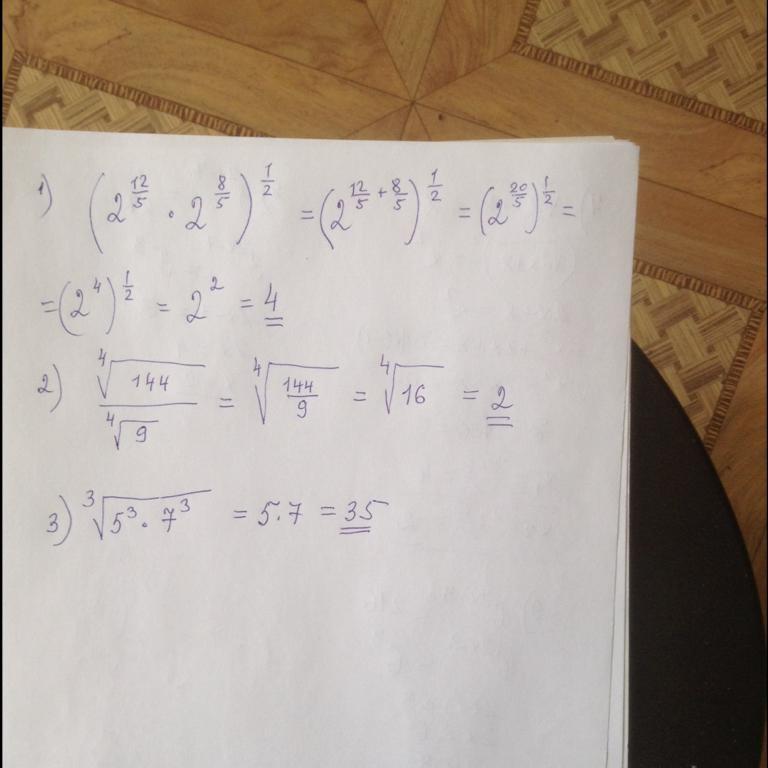 1) (2^(12/5) · 2^(8/5))^(1/2) = (2^(12/5 + 8/5))^(1/2) = (2^(20/5))^(1/2) =
= (2^4)^(1/2) = 2^2 = 4
2) ∜144 / ∜9 = ∜(144/9) = ∜16 = 2
3) ∛(5^3 · 7^3) = 5·7 = 35